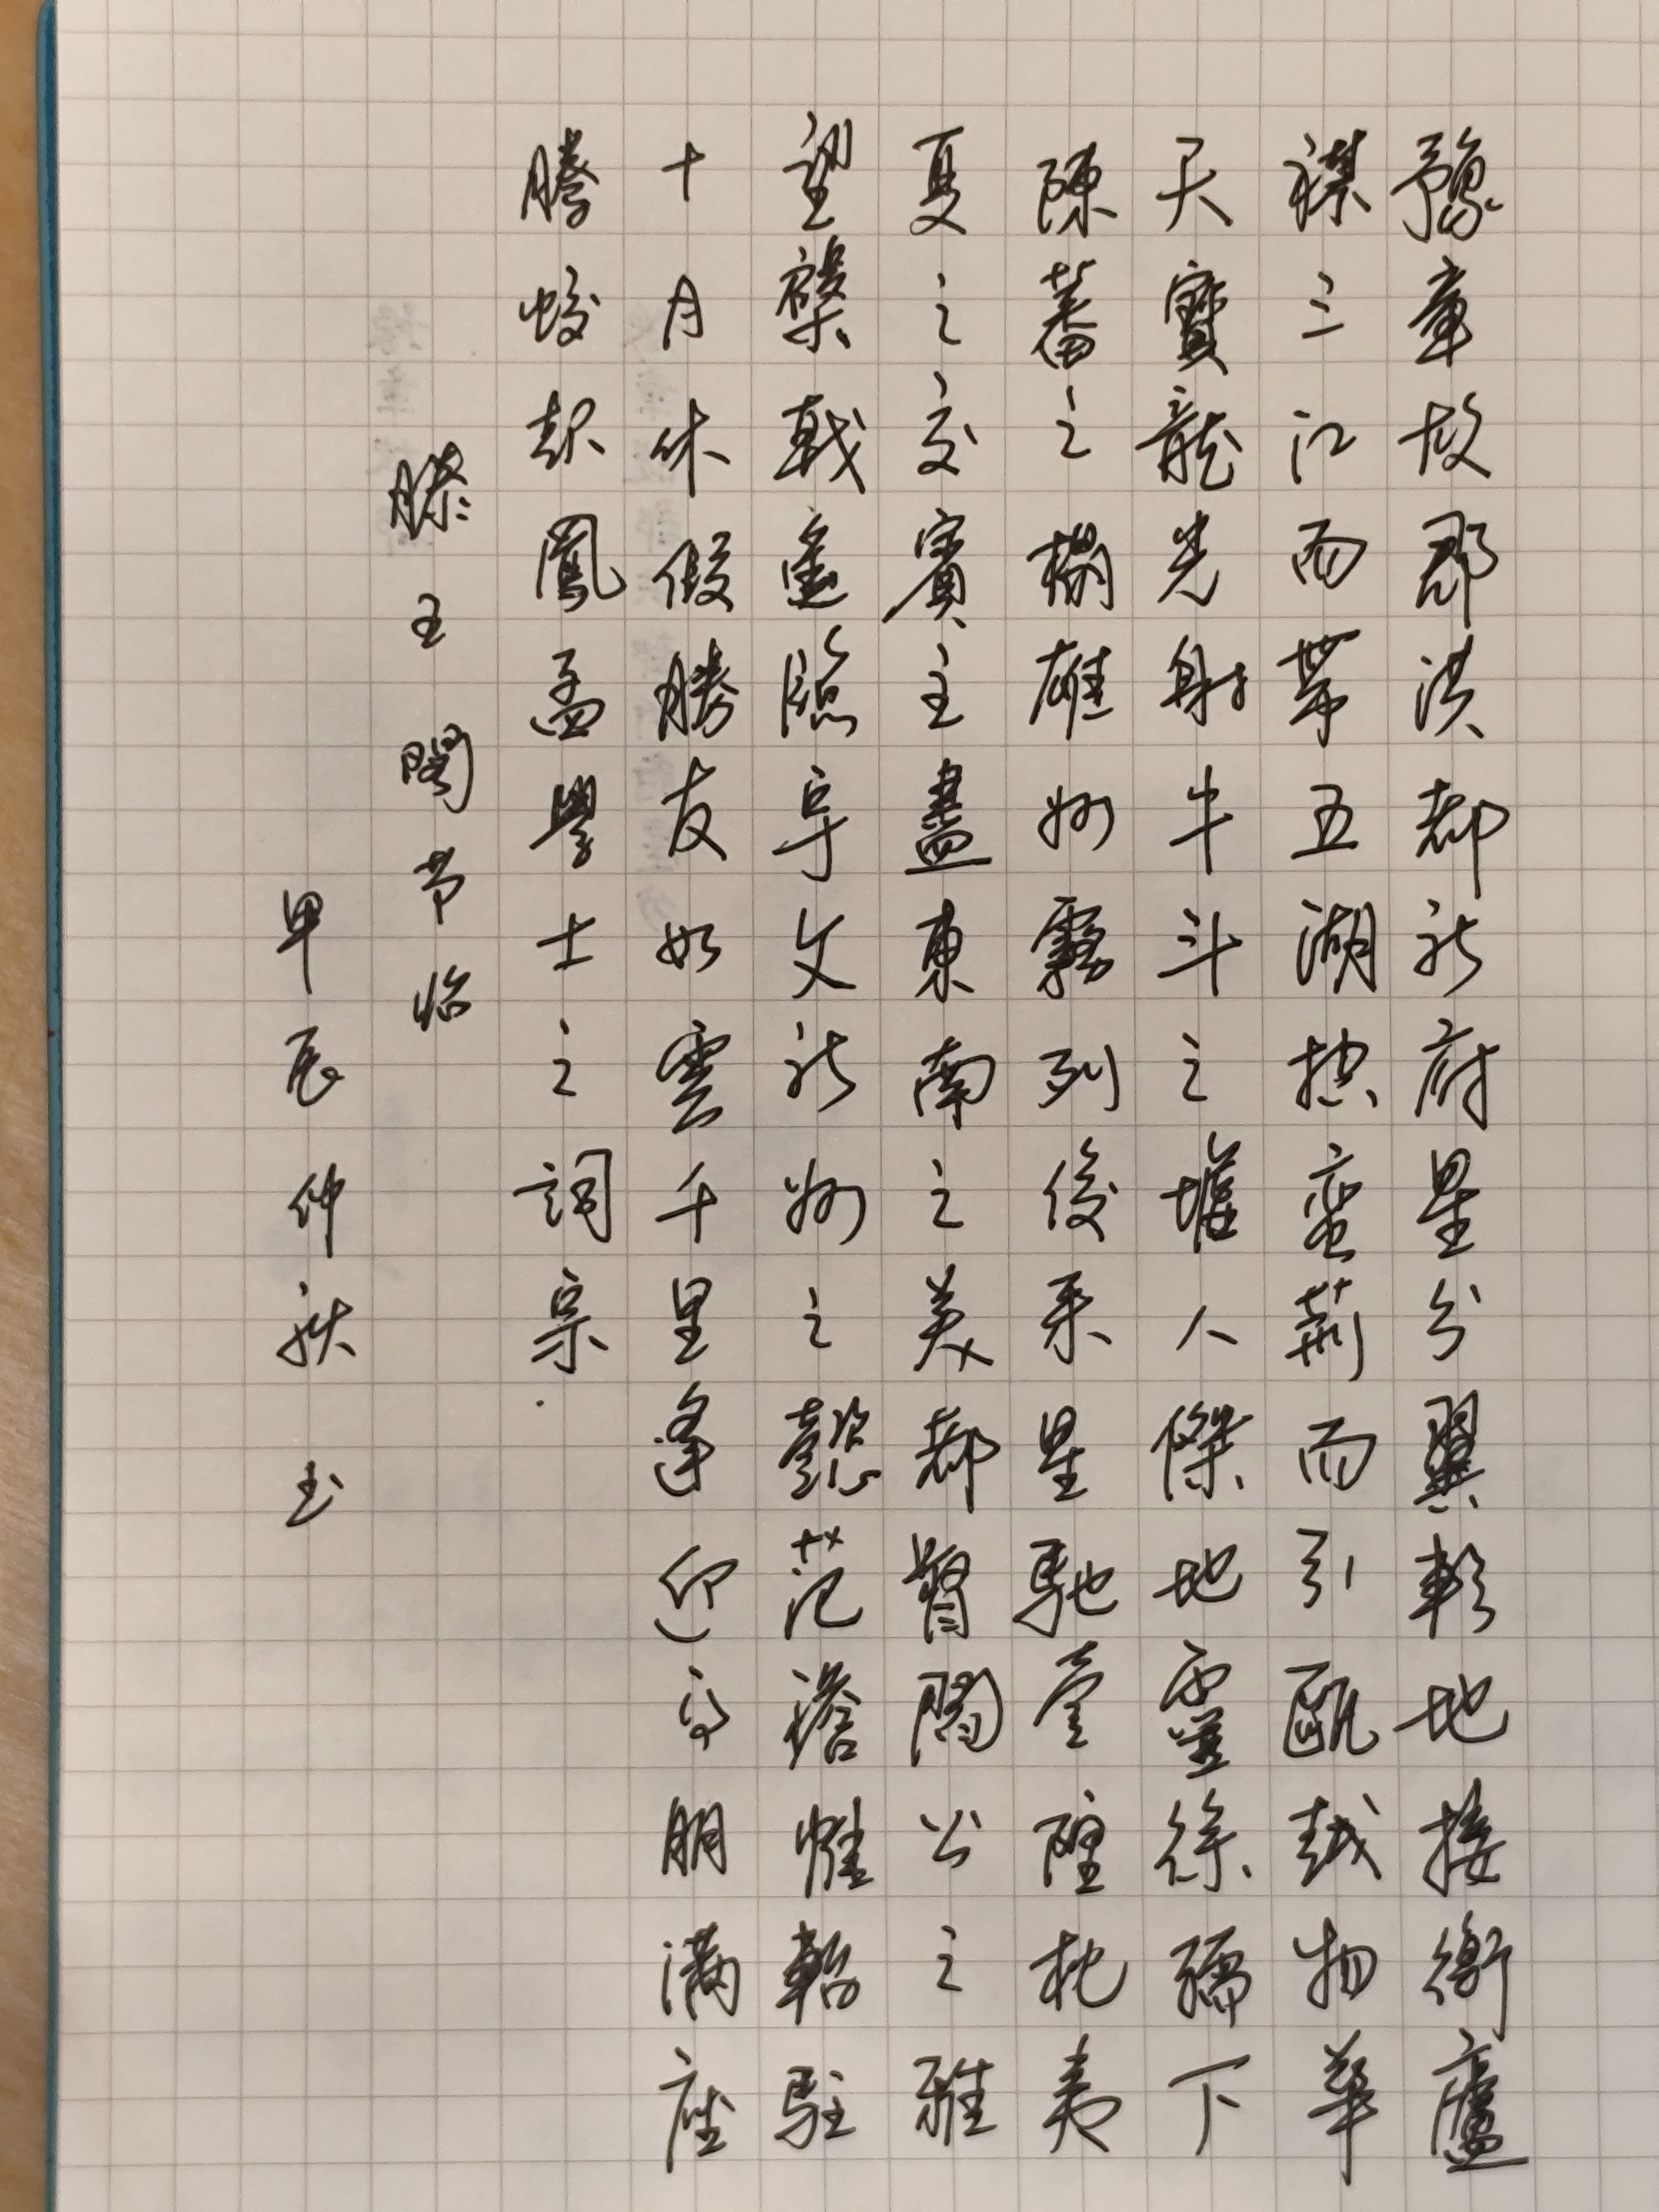 豫章故郡洪都新府星分翼軫地接衡廬
襟三江而帶五湖控蛮荊而引甌越物華
天寶龍光射牛斗之墟人傑地靈徐孺下
陳蕃之榻雄州霧列俊采星馳臺隍枕夷
夏之交賓主盡東南之美都督閻公之雅
望棨戟遙臨宇文新州之懿范襜帷暫駐
十月休假勝友如雲千里逢迎高朋满座
騰蛟起鳳孟學士之詞宗
滕王閣节临
甲辰仲秋